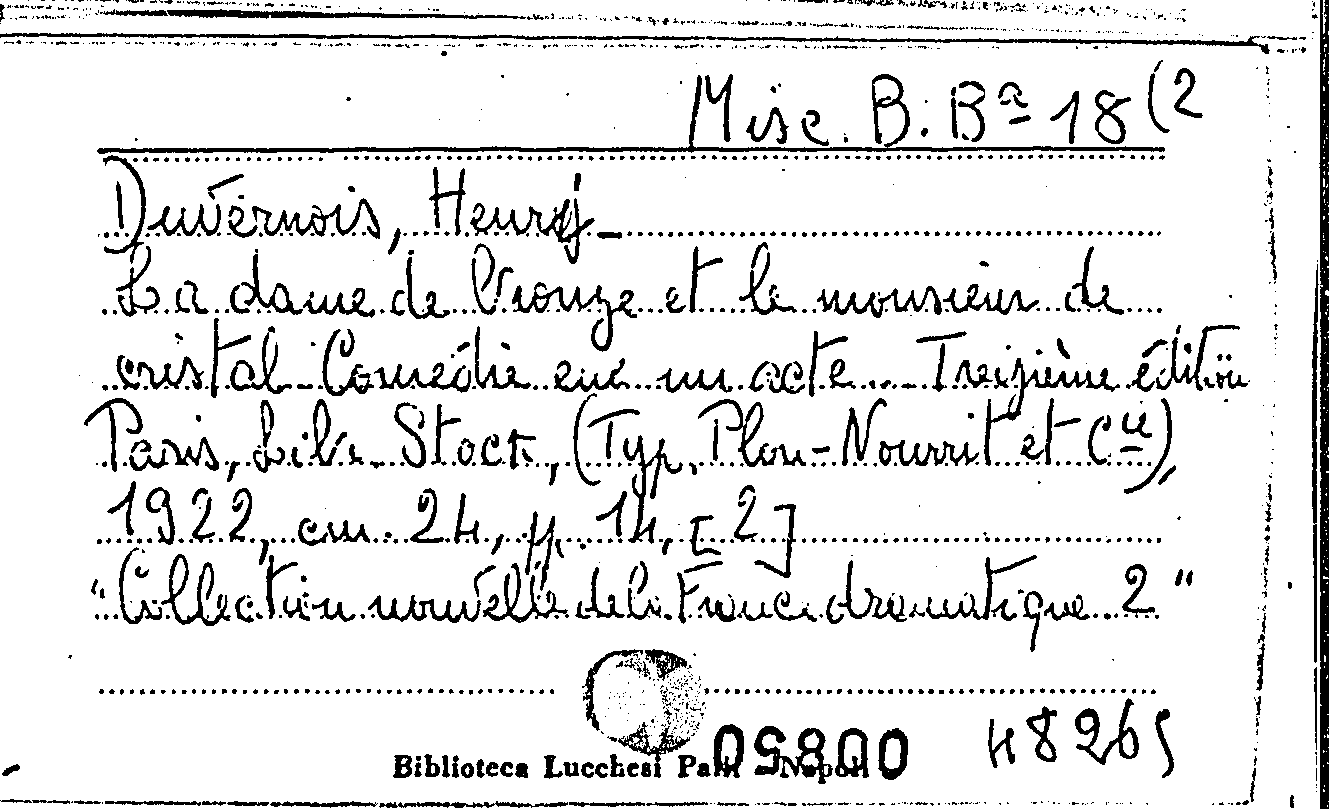 Misc. B. Bª 18 (2
Duvernois, Henry_
La dame de bronze et le monsieur de
cristal. Comédie en un acte... Treizième édition
Paris, Libr. Stock, (Typ. Plon-Nourrit et Cie),
1922, cm. 24, p. 14, [2]
"Collection nouvelle de la France dramatique 2"
48265
Biblioteca Lucchesi Palli - Napoli